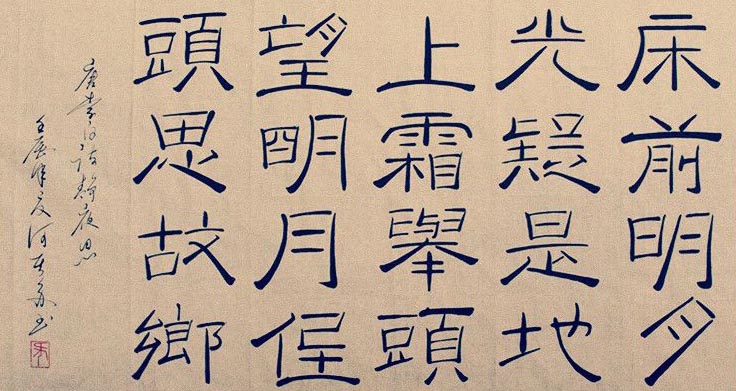 床前明月
光疑是地
上霜舉頭
望明月低
頭思故鄉
唐李白诗静夜思
壬辰年夏河东书